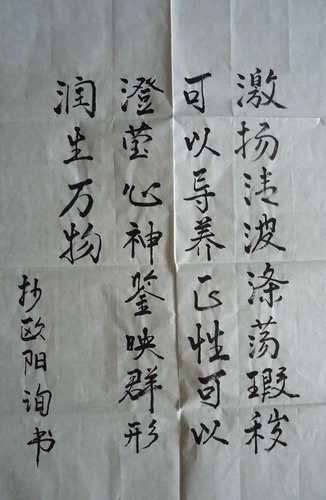 激扬清波涤荡瑕秽
可以导养正性可以
澄莹心神鉴映群形
润生万物
抄欧阳询书